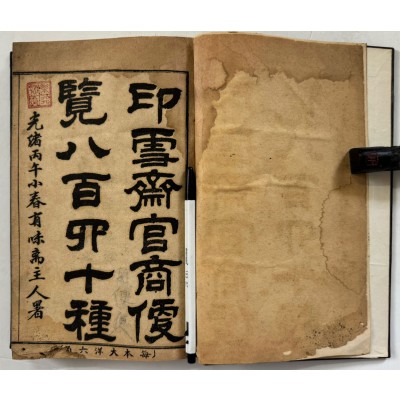 印雪齋官商便
覽八百四十種
光緒丙午小春有味齋主人署
每本大洋六角